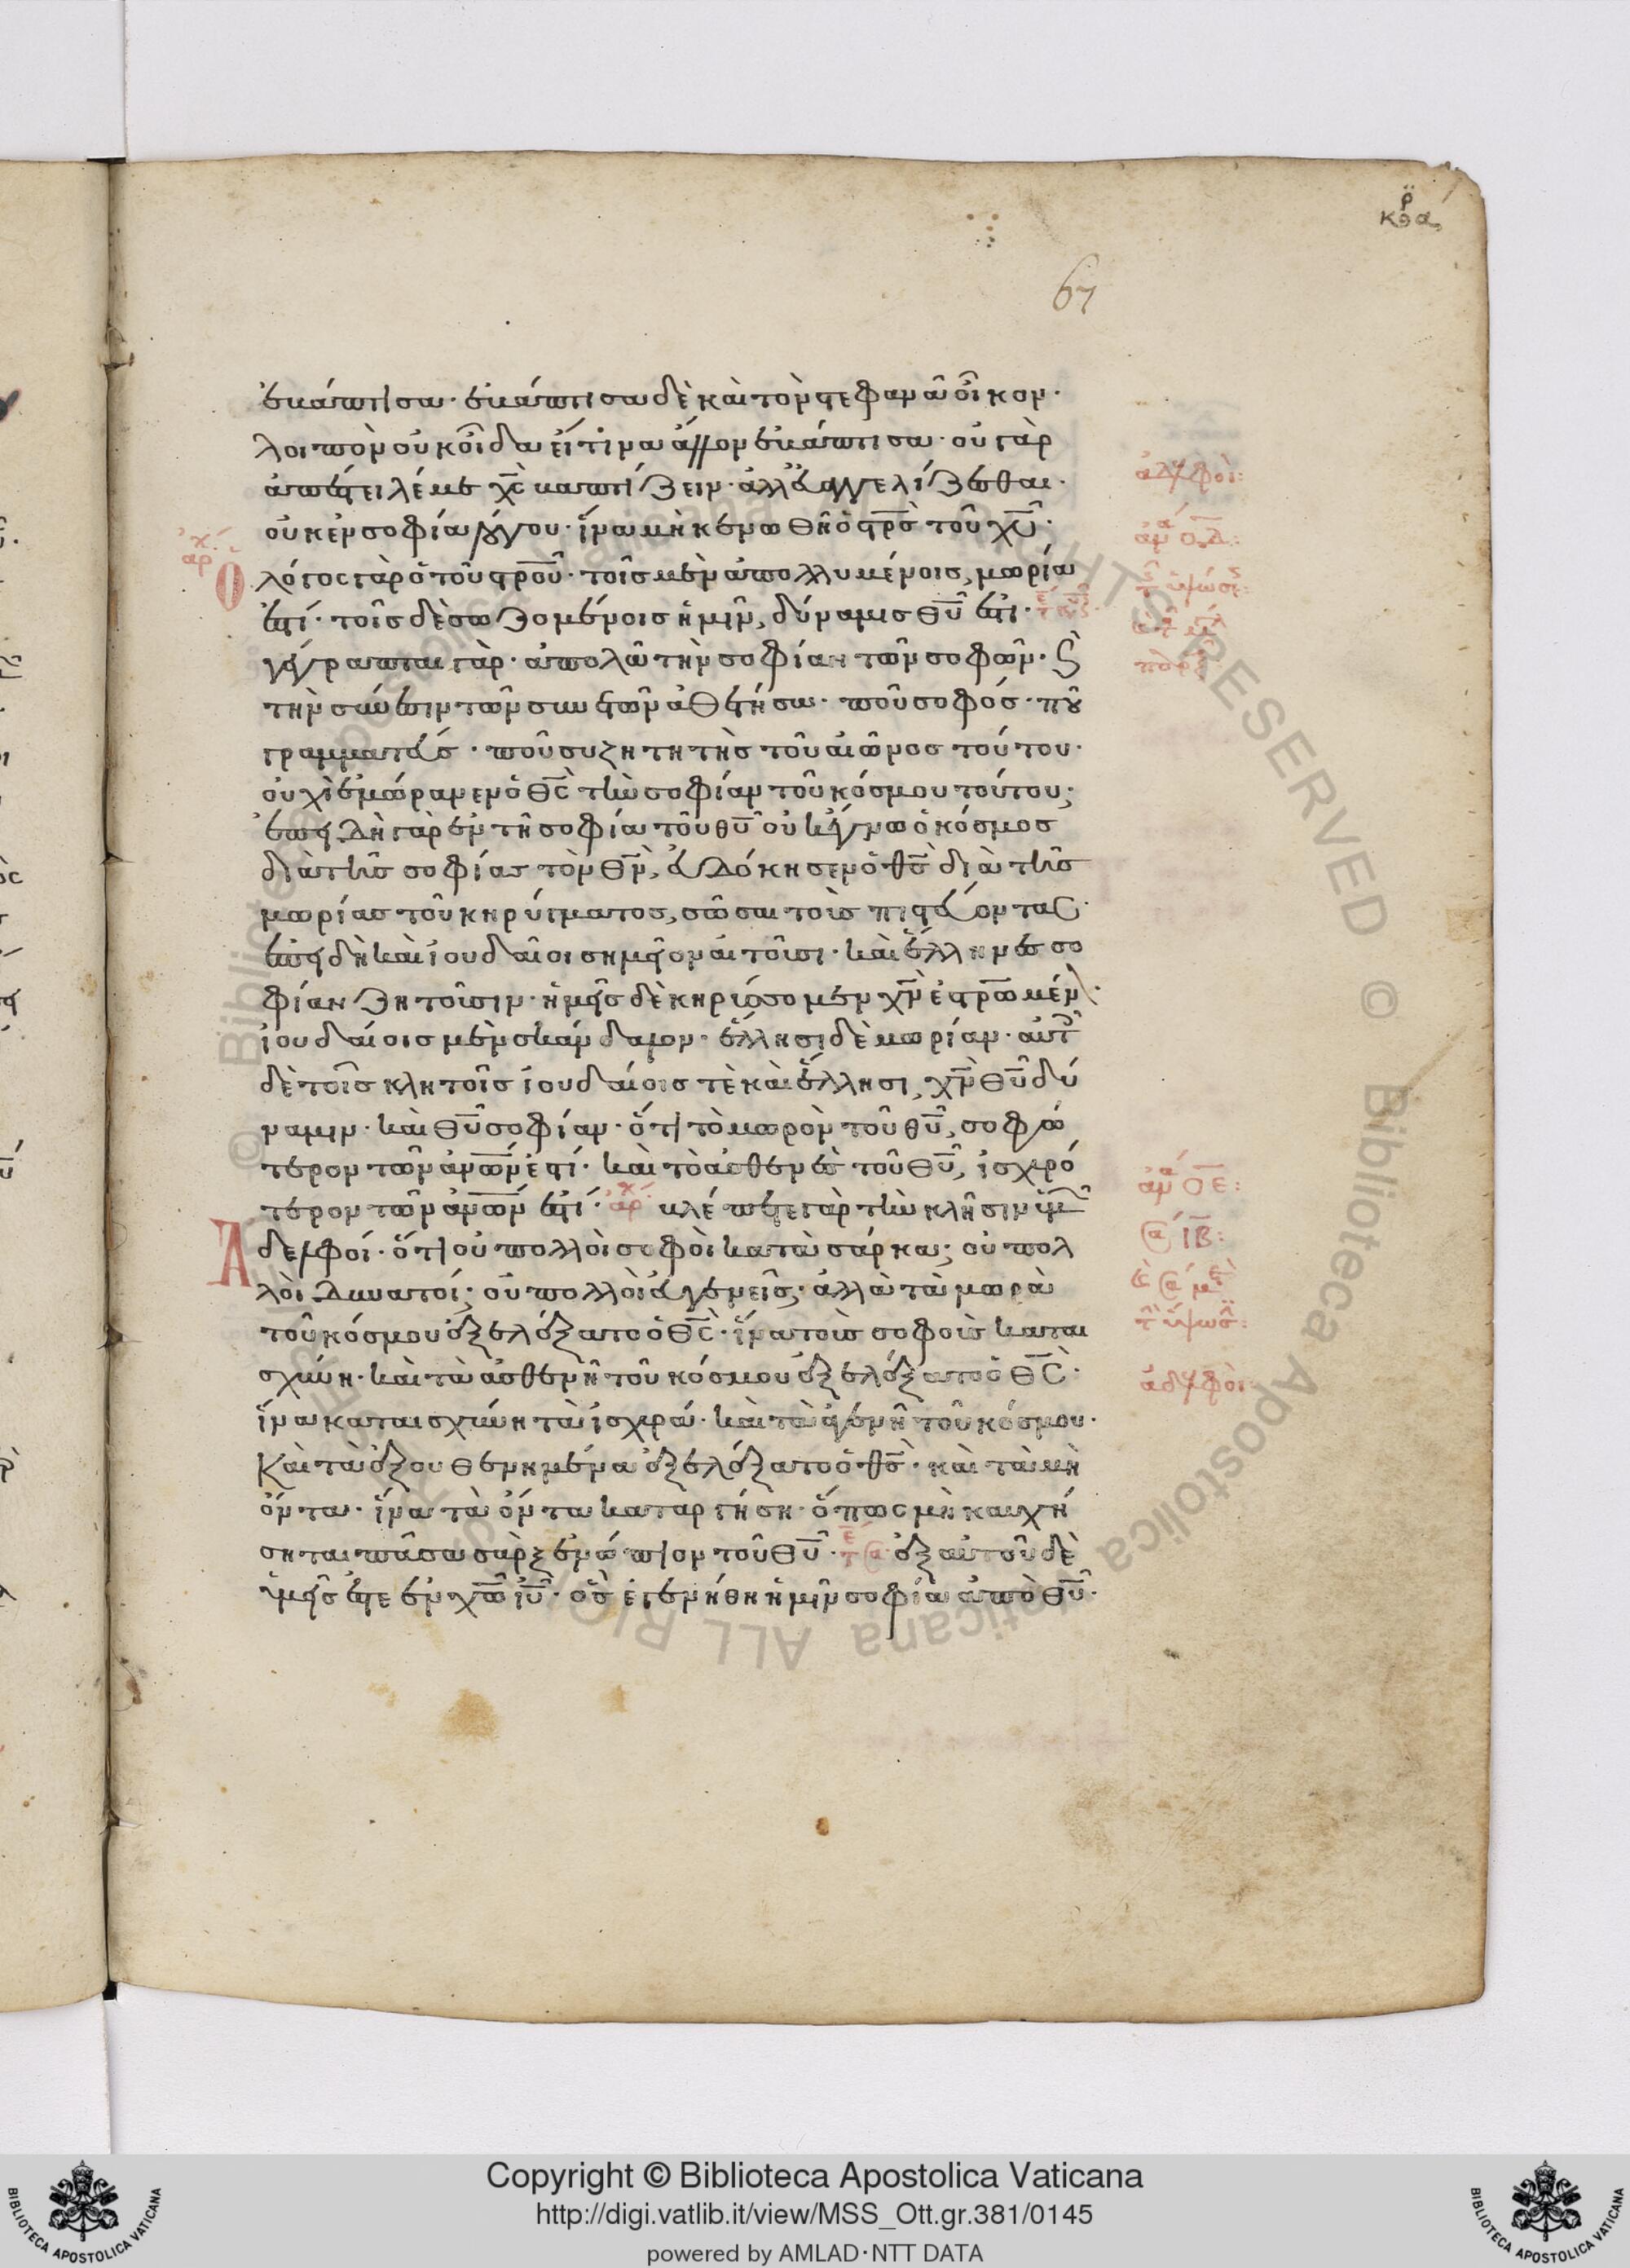 κϙα
67
ἐβάπτισα· ἐβάπτισα δὲ καὶ τὸν στεφανᾶ οἶκον·
λοιπὸν οὐκ οἶδα εἴ τινα ἄλλον ἐβάπτισα· οὐ γὰρ
ἀπέστειλέ με χ̅ς̅ βαπτίζειν· ἀλλ' εὐαγγελίζεσθαι·
οὐκ ἐν σοφία λόγου· ἵνα μὴ κενωθῆ ὁ στ̅ρ̅ο̅ς̅ τοῦ χ̅υ̅·
ὁ λόγος γὰρ ὁ τοῦ στ̅ρ̅ο̅υ̅· τοῖς μὲν ἀπολλυμένοις, μωρία
ἐστί· τοῖς δὲ σωζομένοις ἡμῖν, δύναμις θ̅υ̅ ἐστι·
γέγραπται γάρ· ἀπολῶ τὴν σοφίαν τῶν σοφῶν· ϗ
τὴν σύνεσιν τῶν συνετῶν ἀθετήσω· ποῦ σοφός· ποῦ
γραμματεύς· ποῦ συζητητὴς τοῦ αἰῶνος τούτου·
οὐχὶ ἐμώρανεν ὁ θ̅ς̅ τὴν σοφίαν τοῦ κόσμου τούτου;
ἐπειδὴ γὰρ ἐν τῆ σοφία τοῦ θ̅υ̅ οὐκ ἔγνω ὁ κόσμος
διὰ τῆς σοφίας τὸν θ̅ν̅, εὐδόκησεν ὁ θ̅ς̅ διὰ τῆς
μωρίας τοῦ κηρύγματος, σῶσαι τοὺς πιστεύοντας·
ἐπειδὴ καὶ ἰουδαῖοι σημεῖον αἰτοῦσι· καὶ ἕλληνες σο
φίαν ζητοῦσιν· ἡμεῖς δὲ κηρύσσομεν χ̅ν̅ ἐστ̅ρ̅ω̅μέν·
ἰουδαίοις μὲν σκάνδαλον· ἕλλησι δὲ μωρίαν· αὐτ
δὲ τοῖς κλητοῖς ἰουδαίοις τὲ καὶ ἕλλησι, χ̅ν̅ θ̅υ̅ δύ
ναμιν· καὶ θ̅υ̅ σοφίαν· ὅτι τὸ μωρὸν τοῦ θ̅υ̅, σοφώ
τερον τῶν ἀν̅ω̅ν̅ ἐστί· καὶ τὸ ἀσθενὲς τοῦ θ̅υ̅, ἰσχυρό
τερον τῶν ἀν̅ω̅ν̅ ἐστί· ἀρχ βλέπετε γὰρ τὴν κλῆσιν ὑμ
Ἀδελφοί· ὅτι οὐ πολλοὶ σοφοὶ κατὰ σάρκα; οὐ πολ
λοὶ δυνατοί; οὐ πολλοὶ εὐγενεῖς; ἀλλὰ τὰ μωρὰ
τοῦ κόσμου ἐξελέξατο ὁ θ̅ς̅· ἵνα τοὺς σοφοὺς καται
σχύνη· καὶ τὰ ἀσθενῆ τοῦ κόσμου ἐξελέξατο ὁ θ̅ς̅·
ἵνα καταισχύνη τὰ ἰσχυρά· καὶ τὰ ἀγενῆ τοῦ κόσμου·
καὶ τὰ ἐξουθενημένα ἐξελέξατο ὁ θ̅ς̅· καὶ τὰ μὴ
ὄντα· ἵνα τὰ ὄντα καταργήση· ὅπως μὴ καυχή
σηται πᾶσα σὰρξ ἐνώπιον τοῦ θ̅υ̅· ἐξ αὐτοῦ δὲ
ὑμεῖς ἐστε ἐν χ̅ω̅ ι̅υ̅· ὃς ἐγενήθη ἡμῖν σοφία ἀπὸ θ̅υ̅·
ἀδελφοὶ:
ἀν Ο̅Δ̅:
ἀν Ο̅Ε̅:
ΙΒ:
ἀδελφοὶ
Copyright © Biblioteca Apostolica Vaticana
http://digi.vatlib.it/view/MSS_Ott.gr.381/0145
powered by AMLAD·NTT DATA
BIBLIOTECA APOSTOLICA VATICANA
BIBLIOTECA APOSTOLICA VATICANA